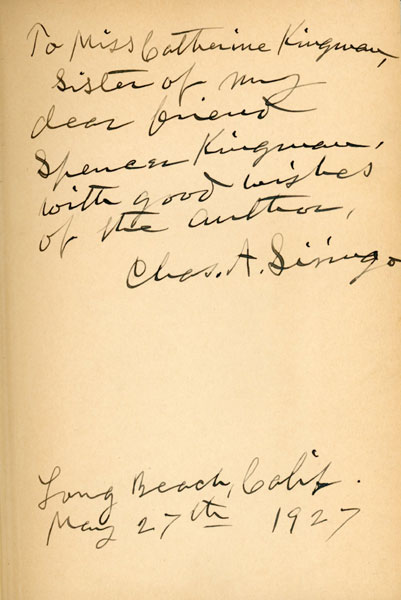 To Miss Catherine Kingman,
Sister of my
dear friend
Spencer Kingman,
with good wishes
of the author,
Chas. A. Siringo
Long Beach, Calif.
May 27th 1927